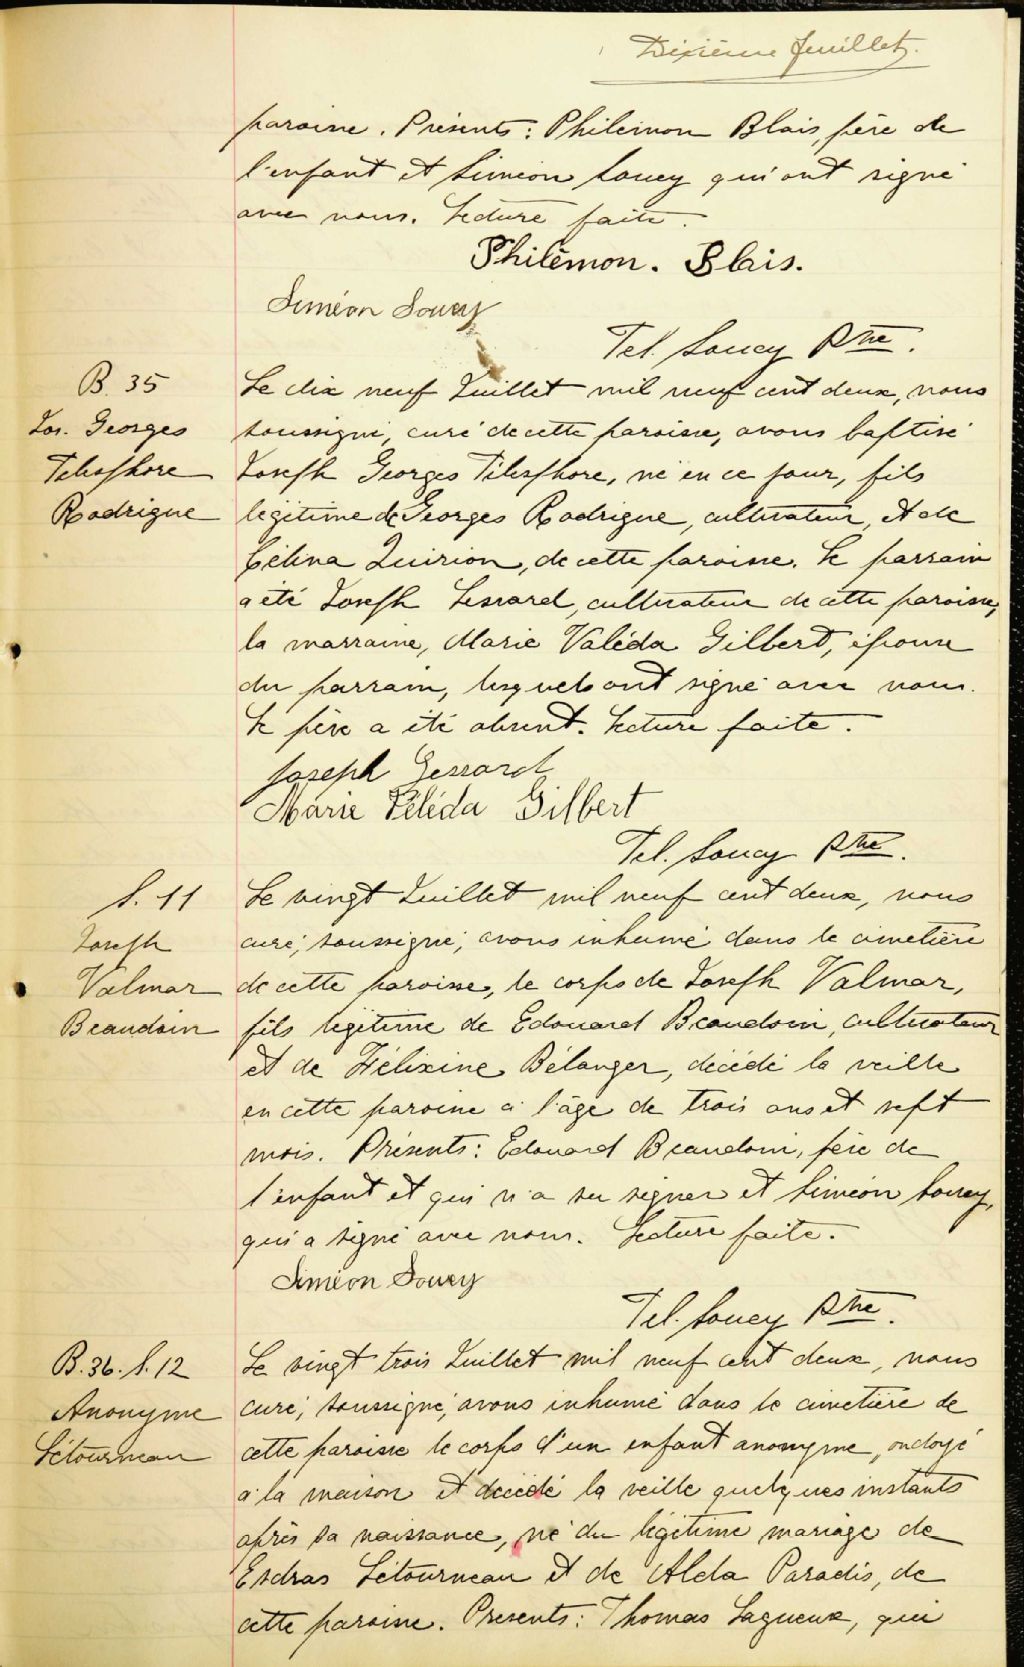 Dixième feuillet.
paroisse. Présents: Philémon Blais, père de
l'enfant et Siméon Soucy qui ont signé
avec nous. Lecture faite.
Philémon. Blais.
Siméon Soucy
Tel. Soucy Ptre.
B. 35
Jos. Georges
Télesphore
Rodrigue
Le dix neuf Juillet mil neuf cent deux, nous
soussigné, curé de cette paroisse, avons baptisé
Joseph Georges Télesphore, né en ce jour, fils
légitime de Georges Rodrigue, cultivateur, et de
Célina Quirion, de cette paroisse. Le parrain
a été Joseph Lessard, cultivateur de cette paroisse,
la marraine, Marie Valéda Gilbert, épouse
du parrain, lesquels ont signé avec nous.
Le père a été absent. Lecture faite.
Joseph Lessard
Marie Véléda Gilbert
Tel. Soucy Ptre.
S. 11
Joseph
Valmar
Beaudoin
Le vingt Juillet mil neuf cent deux, nous
curé, soussigné, avons inhumé dans le cimetière
de cette paroisse, le corps de Joseph Valmar,
fils légitime de Edouard Beaudoin, cultivateur
et de Félixine Bélanger, décédé la veille
en cette paroisse à l'âge de trois ans et sept
mois. Présents: Edouard Beaudoin, père de
l'enfant et qui n'a su signer et Siméon Soucy,
qui a signé avec nous. Lecture faite.
Siméon Soucy
Tel. Soucy Ptre.
B. 36. S. 12
Anonyme
Létourneau
Le vingt trois Juillet mil neuf cent deux, nous
curé, soussigné, avons inhumé dans le cimetière de
cette paroisse le corps d'un enfant anonyme, ondoyé
à la maison et décédé la veille quelques instants
après sa naissance, né du légitime mariage de
Esdras Létourneau et de Alda Paradis, de
cette paroisse. Présents: Thomas Lagueux, qui